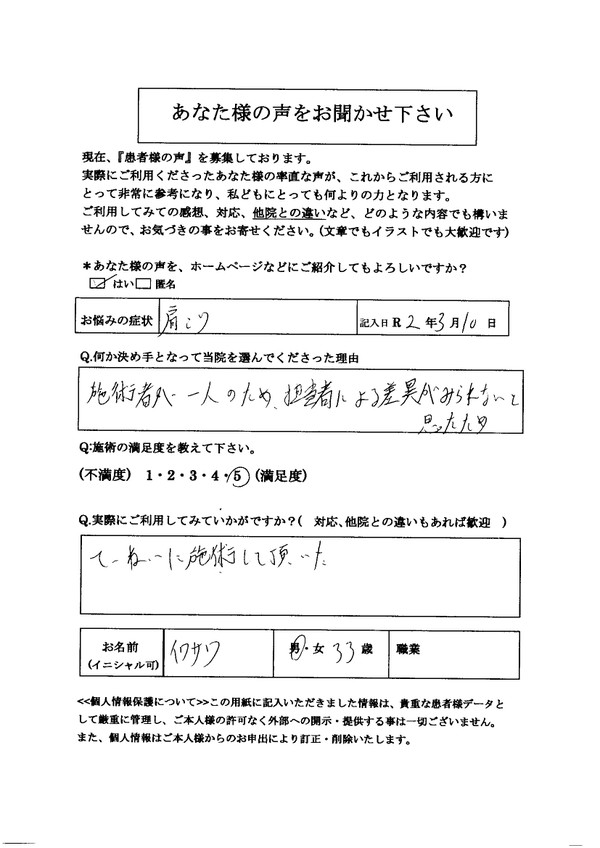 あなた様の声をお聞かせ下さい
現在、『患者様の声』を募集しております。
実際にご利用くださったあなた様の率直な声が、これからご利用される方に
とって非常に参考になり、私どもにとっても何よりの力となります。
ご利用してみての感想、対応、他院との違いなど、どのような内容でも構いま
せんので、お気づきの事をお寄せください。(文章でもイラストでも大歓迎です)
*あなた様の声を、ホームページなどにご紹介してもよろしいですか?
☑はい□匿名
お悩みの症状 肩こり 記入日 R 2 年 3 月 10 日
Q.何か決め手となって当院を選んでくださった理由
施術者が一人のため、担当者による差異がみられないと
思ったため
Q:施術の満足度を教えて下さい。
(不満度) 1・2・3・4・5 (満足度)
Q.実際にご利用してみていかがですか?( 対応、他院との違いもあれば歓迎 )
ていねいに施術して頂いた
お名前 イワサワ 男・女 33 歳 職業
(イニシャル可)
<<個人情報保護について>>この用紙に記入いただきました情報は、貴重な患者様データと
して厳重に管理し、ご本人様の許可なく外部への開示・提供する事は一切ございません。
また、個人情報はご本人様からのお申出により訂正・削除いたします。